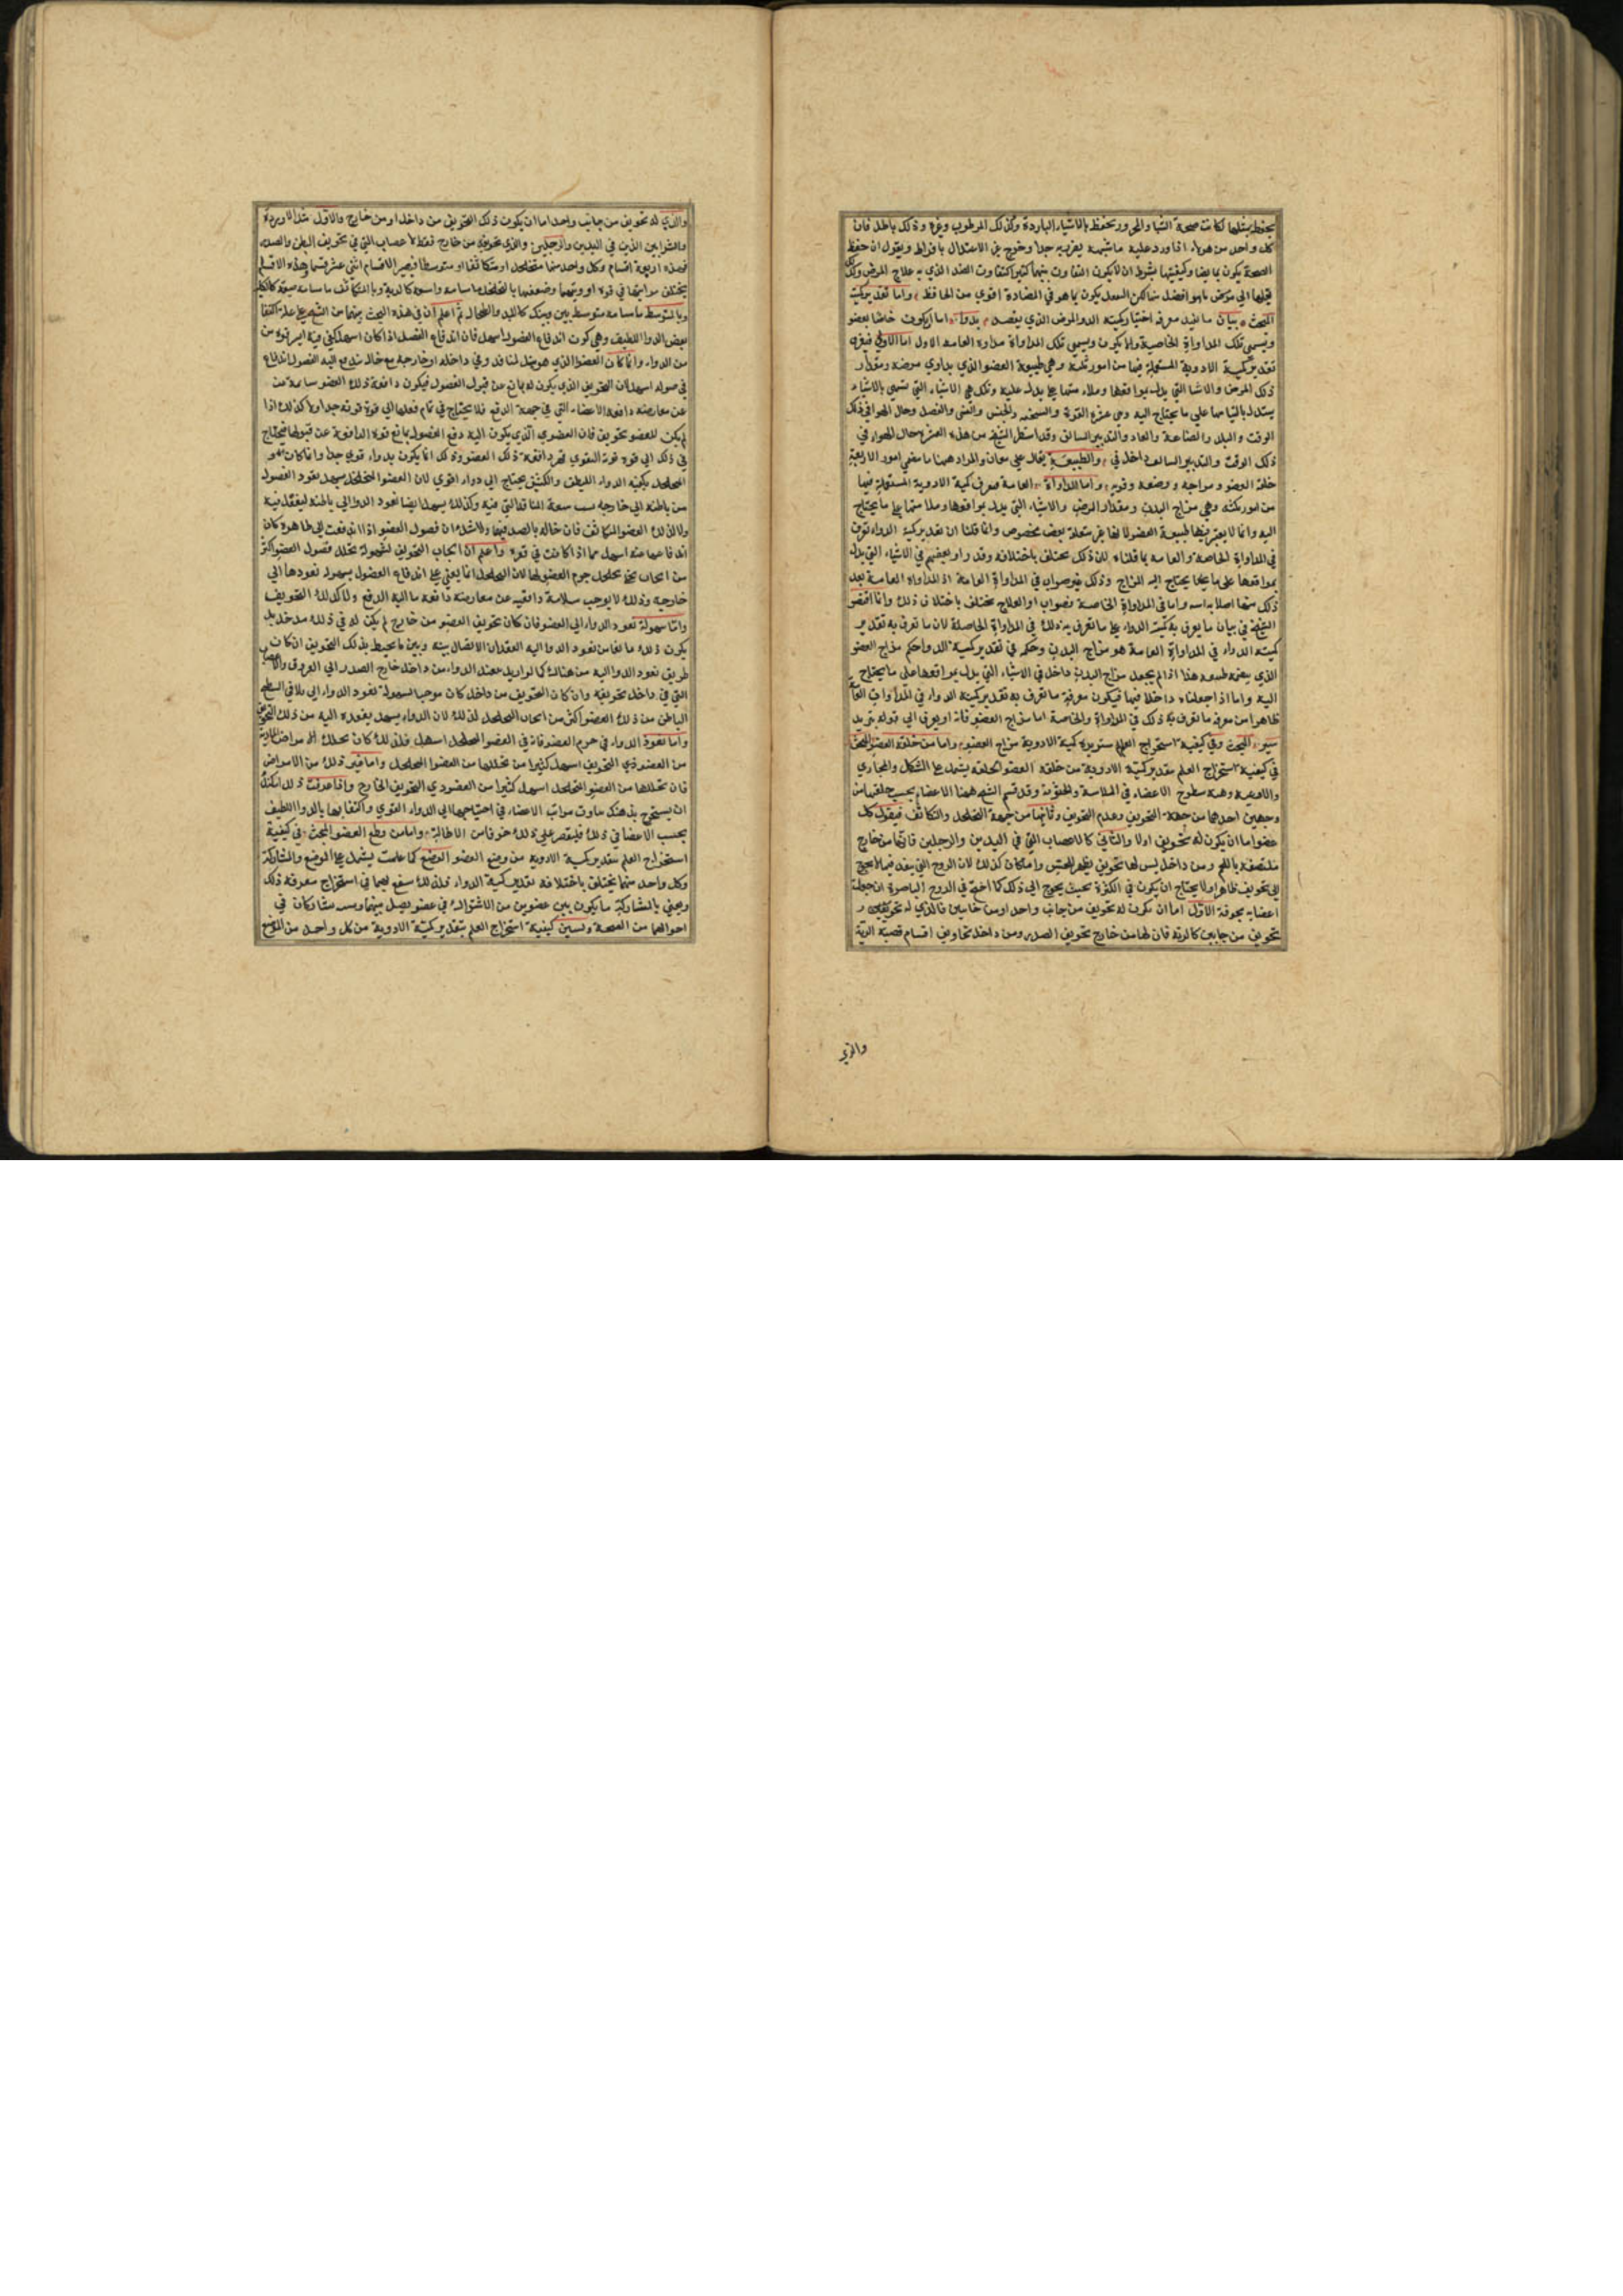 يحفظ بمثلها لكانت صحة الشبا والمحرور تحفظ بالاشياء الباردة وكذلك المرطوب وغيره وذلك باطل فان
كل واحد من هولاء اذا ورد عليه ما شبهه يضر به جدا وخرج عن الاعتدال بافراط ويقول ان حفظ
الصحة يكون بما يضاد كيفيتها بشرط ان لا يكون التفاوت بينهما كثيرا كتفاوت الضد الذي به علاج المرض
واما تقدير كمية
المبحث بيان ما المرض الذي يقصد بدواء اما ان يكون خاصا بعضو
ويسمى تلك المداواة الخاصية ولا يكون ويسمى تلك المداواة مداواة العامة الاول اما الاولى فيعرف
تقدير كمية الادوية المستعملة فيها من امور ثلثة وهي طبيعة العضو الذي يداوي مرضه ومقدار
ذلك المرض والاشيا التي يدل بموافقتها وهي الاشياء التي تسمى بالاشياء
يستدل على ما يحتاج اليه وهي عشرة القوة والسحنة والجنس والسن والفصل وحال الهوا في ذلك
الوقت والبلد والصناعة والعادة والتدبير السالف وقد اسقط الشيخ من هذه العشرة حال الهواء في
ذلك الوقت والتدبير السالف داخل في والطبيعة يقال على معان والمراد ههنا ما معنى امور الاربعة
خلقة العضو ومزاجه ووضعه وقوته واما المداواة العامة فيعرف كمية الادوية المستعملة فيها
من امور ثلثة وهي مزاج البدن ومقدار المرض والاشياء التي يدل بموافقتها على ما يحتاج
اليه وانما لا يعتبر فيها طبيعة العضو لانها غير متعلقة بعضو مخصوص وانما قلنا ان تقدير كمية الدواء تعرف
في المداواة الخاصة والعامة بما قلناه لان ذلك يختلف باختلافه وقد زاد بعضهم في الاشياء التي يدل
بموافقتها على ما يحتاج اليه المزاج وذلك غير صواب في المداواة العامة اذ المداواة العامة بعد
ذلك واما في المداواة الخاصة فصواب اذ العلاج يختلف باختلاف ذلك وانما اقتصر
الشيخ في بيان ما يعرف به كمية الدواء على ما تعرف به ذلك في المداواة الخاصة لان ما تعرف به تقدير
كمية الدواء في المداواة العامة هو مزاج البدن وحكمه في تقدير كمية الدواء حكم مزاج العضو
الذي هذا اذا لم يجعل مزاج البدن داخل في الاشياء التي يدل بموافقتها على ما يحتاج
اليه واما اذا جعلناه داخلا فيها فيكون معرفة ما تعرف به تقدير كمية الدواء في المداواة
ظاهرا من معرفة ما تعرف به ذلك في المداواة الخاصة اما مزاج العضو فانه
المبحث وفي كيفية استخراج العلم كمية الادوية مزاج العضو واما من خلقة العضو المبحث
في كيفية استخراج العلم بتقدير كمية الادوية من خلقة العضو الخلقة يشمل على الشكل والمجاري
والاوعية وهيئة سطوح الاعضاء في الملاسة والخشونة وقد قسم الشيخ ههنا الاعضاء بحسب خلقتها من
وجهين احدهما من جهة التجويف وعدم التجويف وثانيهما من جهة التخلخل والتكاثف فيقول كل
عضو اما ان يكون له تجويف اولا والثاني كالاعصاب التي في اليدين والرجلين فانها من خارج
ملتصقة باللحم ومن داخل ليس لها تجويف يظهر للحس وانما كان كذلك لان الروح التي ينفذ فيها لا يحوج
الى تجويف ظاهر اولا يحتاج ان يكون في الكثرة بحيث يحوج الى ذلك كما احتج في الروح الباصرة ان جعلت
اعصابه مجوفة الاول اما ان يكون له تجويف من جانب واحد او من جانبين فالذي له تجويفين
تجويف من جانبين كالرية فان لها من خارج تجويف الصدر ومن داخل تجاويف اقسام قصبة الرية
والذي
والذي له تجويف من جانب واحد اما ان يكون ذلك التجويف من داخل او من خارج والاول مثل الاوردة
والشرايين الذين في اليدين والرجلين والذي تجويفه من خارج فقط كالاعصاب التي في تجويف البطن والصدر
فهذه اربعة اقسام وكل واحد منها متخلخل او متكاثف او متوسط فيصير الاقسام اثنى عشر قسما وهذه الاقسام
يختلف مراتبها في قوة ادويتها وضعفها بالمتخلخل ما مسامه واسعة كالرية وبالمتكاثف ما مسامه ضيقة كالكلية
وبالمتوسط ما مسامه متوسط بين بينك كالكبد والطحال ثم اعلم ان في هذه البحث على علة اكتفاء
بعض الدوا اللطيف وهي كون اندفاع الفضول اسهل فان اندفاع الفضل اذا كان اسهل كفى فيه ايسر قوة من
من الدواء وانما كان العضو الذي هو مثل لنا فذ وفي داخله او خارجه مع خال يندفع اليه الفضول اندفاع
فضوله اسهل لان التجويف الذي يكون له مانع عن قبول الفضول فيكون دافعة ذلك العضو سالمة من
عن معارضة دافعة الاعضاء التي في جهة الدفع فلا يحتاج في تمام فعلها الى قوة قوية جدا ولا كذلك اذا
لم يكن للعضو تجويف فان العضو الذي يكون اليه دفع الفضول يمانع قوة الدافعة عن قبولها فيحتاج
في ذلك الى قوة قوية لتقوى لقهر دافعة ذلك العضو وذلك انما يكون بدواء قوي جدا وانما كان العضو
المتخلخل يكفيه الدواء اللطيف والكثيف يحتاج الى دواء اقوى لان العضو المتخلخل يسهل نفوذ الفضول
من باطنه الى خارجه بسبب سعة المنافذ التي فيه وكذلك يسهل ايضا نفوذ الدوا الى باطنه ليفعل فيه
ولا كذلك العضو المتكاثف فان حاله بالضد فيهما ولا شك ان فضول العضو اذا اندفعت الى ظاهره كان
اندفاعها عنه اسهل مما اذا كانت في قعره واعلم ان ايجاب التجويف لسهولة تحلل فضول العضو اكثر
من ايجاب تخلخل جرم العضو لها لان التخلخل انما يعين على اندفاع الفضول بسهولة نفوذها الى
خارجه وذلك لا يوجب سلامة دافعيه عن معارضة دافعة ما اليه الدفع ولا كذلك التجويف
واما سهولة نفوذ الدواء الى العضو فان كان تجويف العضو من خارج لم يكن له في ذلك مدخل بل
يكون ذلك مانعا من نفوذ الدوا اليه لفقدان الاتصال بينه وبين ما يحيط بذلك التجويف ان كان
طريق نفوذ الدوا اليه من هناك كما لو اريد نفوذ الدواء من داخل خارج الصدر الى العروق والاعصاب
التي في داخل تجويفه وان كان التجويف من داخل كان موجبا لسهولة نفوذ الدواء الى ملاقي السطح
الباطن من ذلك العضو اكثر من ايجاب التخلخل لذلك لان الدواء يسهل نفوذه اليه من ذلك التجويف
واما نفوذ الدواء في جرم العضو فانه في العضو المتخلخل اسهل فلذلك كان تحلل الامراض المادية
من العضو ذي التجويف اسهل كثيرا من تحللها من العضو المتخلخل واما غير ذلك من الامراض
فان تحللها من العضو المتخلخل اسهل كثيرا من العضو ذي التجويف الخارج واذا عرفت ذلك امكنك
ان يستخرج بذهنك تفاوت مراتب الاعضاء في احتياجها الى الدواء القوي واكتفائها بالدوا اللطيف
بحسب الاعضا في ذلك فليقتصر على ذلك خوفا من الاطالة واما من وضع العضو المبحث في كيفية
استخراج العلم بتقدير كمية الادوية من وضع العضو الوضع كما علمت يشمل على الموضع والمشاركة
وكل واحد منهما يختلف باختلافه تقدير كمية الدواء فلذلك ينتفع بهما في استخراج معرفة ذلك
ويعني بالمشاركة ما يكون بين عضوين من الاشتراك في عضو يصل بينهما يتشاركان في
احوالهما من الصحة ولنبين كيفية استخراج العلم بتقدير كمية الادوية من كل واحد من الموضع